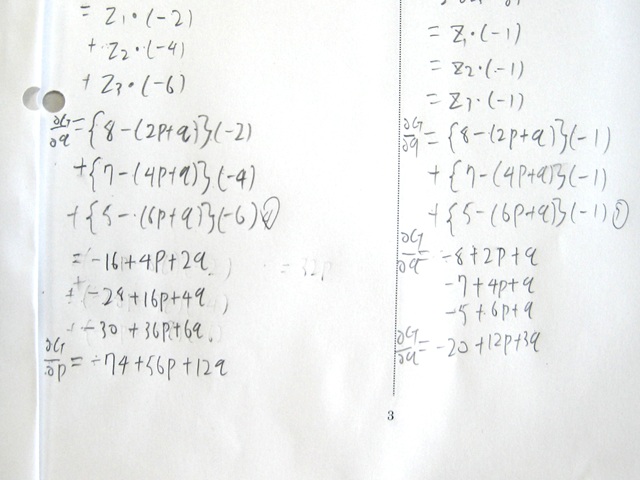 = Z₁·(-2)
+ Z₂·(-4)
+ Z₃·(-6)
∂G/∂q = {8-(2p+q)}(-2)
+{7-(4p+q)}(-4)
+{5-(6p+q)}(-6)④
= -16+4p+2q
+ -28+16p+4q
+ -30+36p+6q
∂G/∂p = -74+56p+12q
= Z₁·(-1)
= Z₂·(-1)
= Z₃·(-1)
∂G/∂q = {8-(2p+q)}(-1)
+{7-(4p+q)}(-1)
+{5-(6p+q)}(-1)⑤
∂G/∂q = -8+2p+q
-7+4p+q
-5+6p+q
∂G/∂q = -20+12p+3q
3